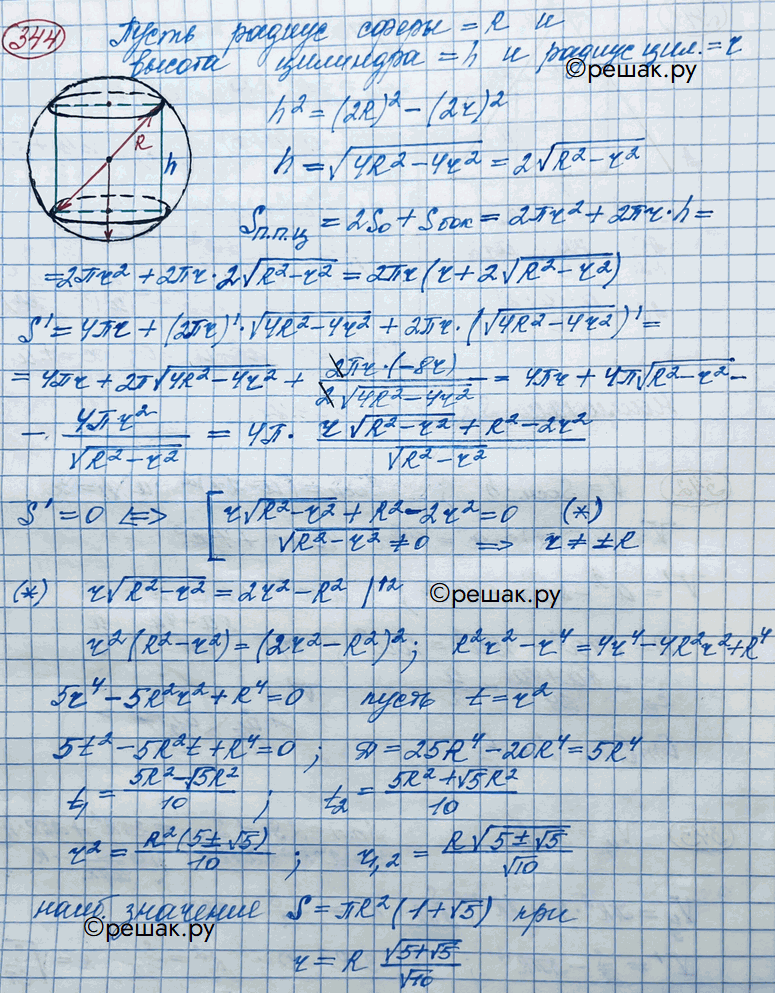 344 Пусть радиус сферы = R и
высота цилиндра = h и радиус цил. = r
©решак.ру
h² = (2R)² − (2r)²
R
h
h = √(4R² − 4r²) = 2√(R² − r²)
Sп.п.ц = 2So + Sбок = 2πr² + 2πr·h =
= 2πr² + 2πr·2√(R² − r²) = 2πr(r + 2√(R² − r²))
S' = 4πr + (2πr)'·√(4R² − 4r²) + 2πr·(√(4R² − 4r²))' =
= 4πr + 2π√(4R² − 4r²) + 2πr·(−8r) / 2√(4R² − 4r²) = 4πr + 4π√(R² − r²) −
− 4πr² / √(R² − r²) = 4π · (r√(R² − r²) + R² − 2r²) / √(R² − r²)
S' = 0 <=> [ r√(R² − r²) + R² − 2r² = 0 (*)
√(R² − r²) ≠ 0 => r ≠ ±R
(*) r√(R² − r²) = 2r² − R² |↑2
©решак.ру
r²(R² − r²) = (2r² − R²)²; R²r² − r⁴ = 4r⁴ − 4R²r² + R⁴
5r⁴ − 5R²r² + R⁴ = 0 пусть t = r²
5t² − 5R²t + R⁴ = 0 ; D = 25R⁴ − 20R⁴ = 5R⁴
t₁ = (5R² − √5R²) / 10 ; t₂ = (5R² + √5R²) / 10
r² = R²(5 ± √5) / 10 ; r₁,₂ = R√(5 ± √5) / √10
наиб. значение S = πR²(1 + √5) при
©решак.ру
r = R √(5 + √5) / √10